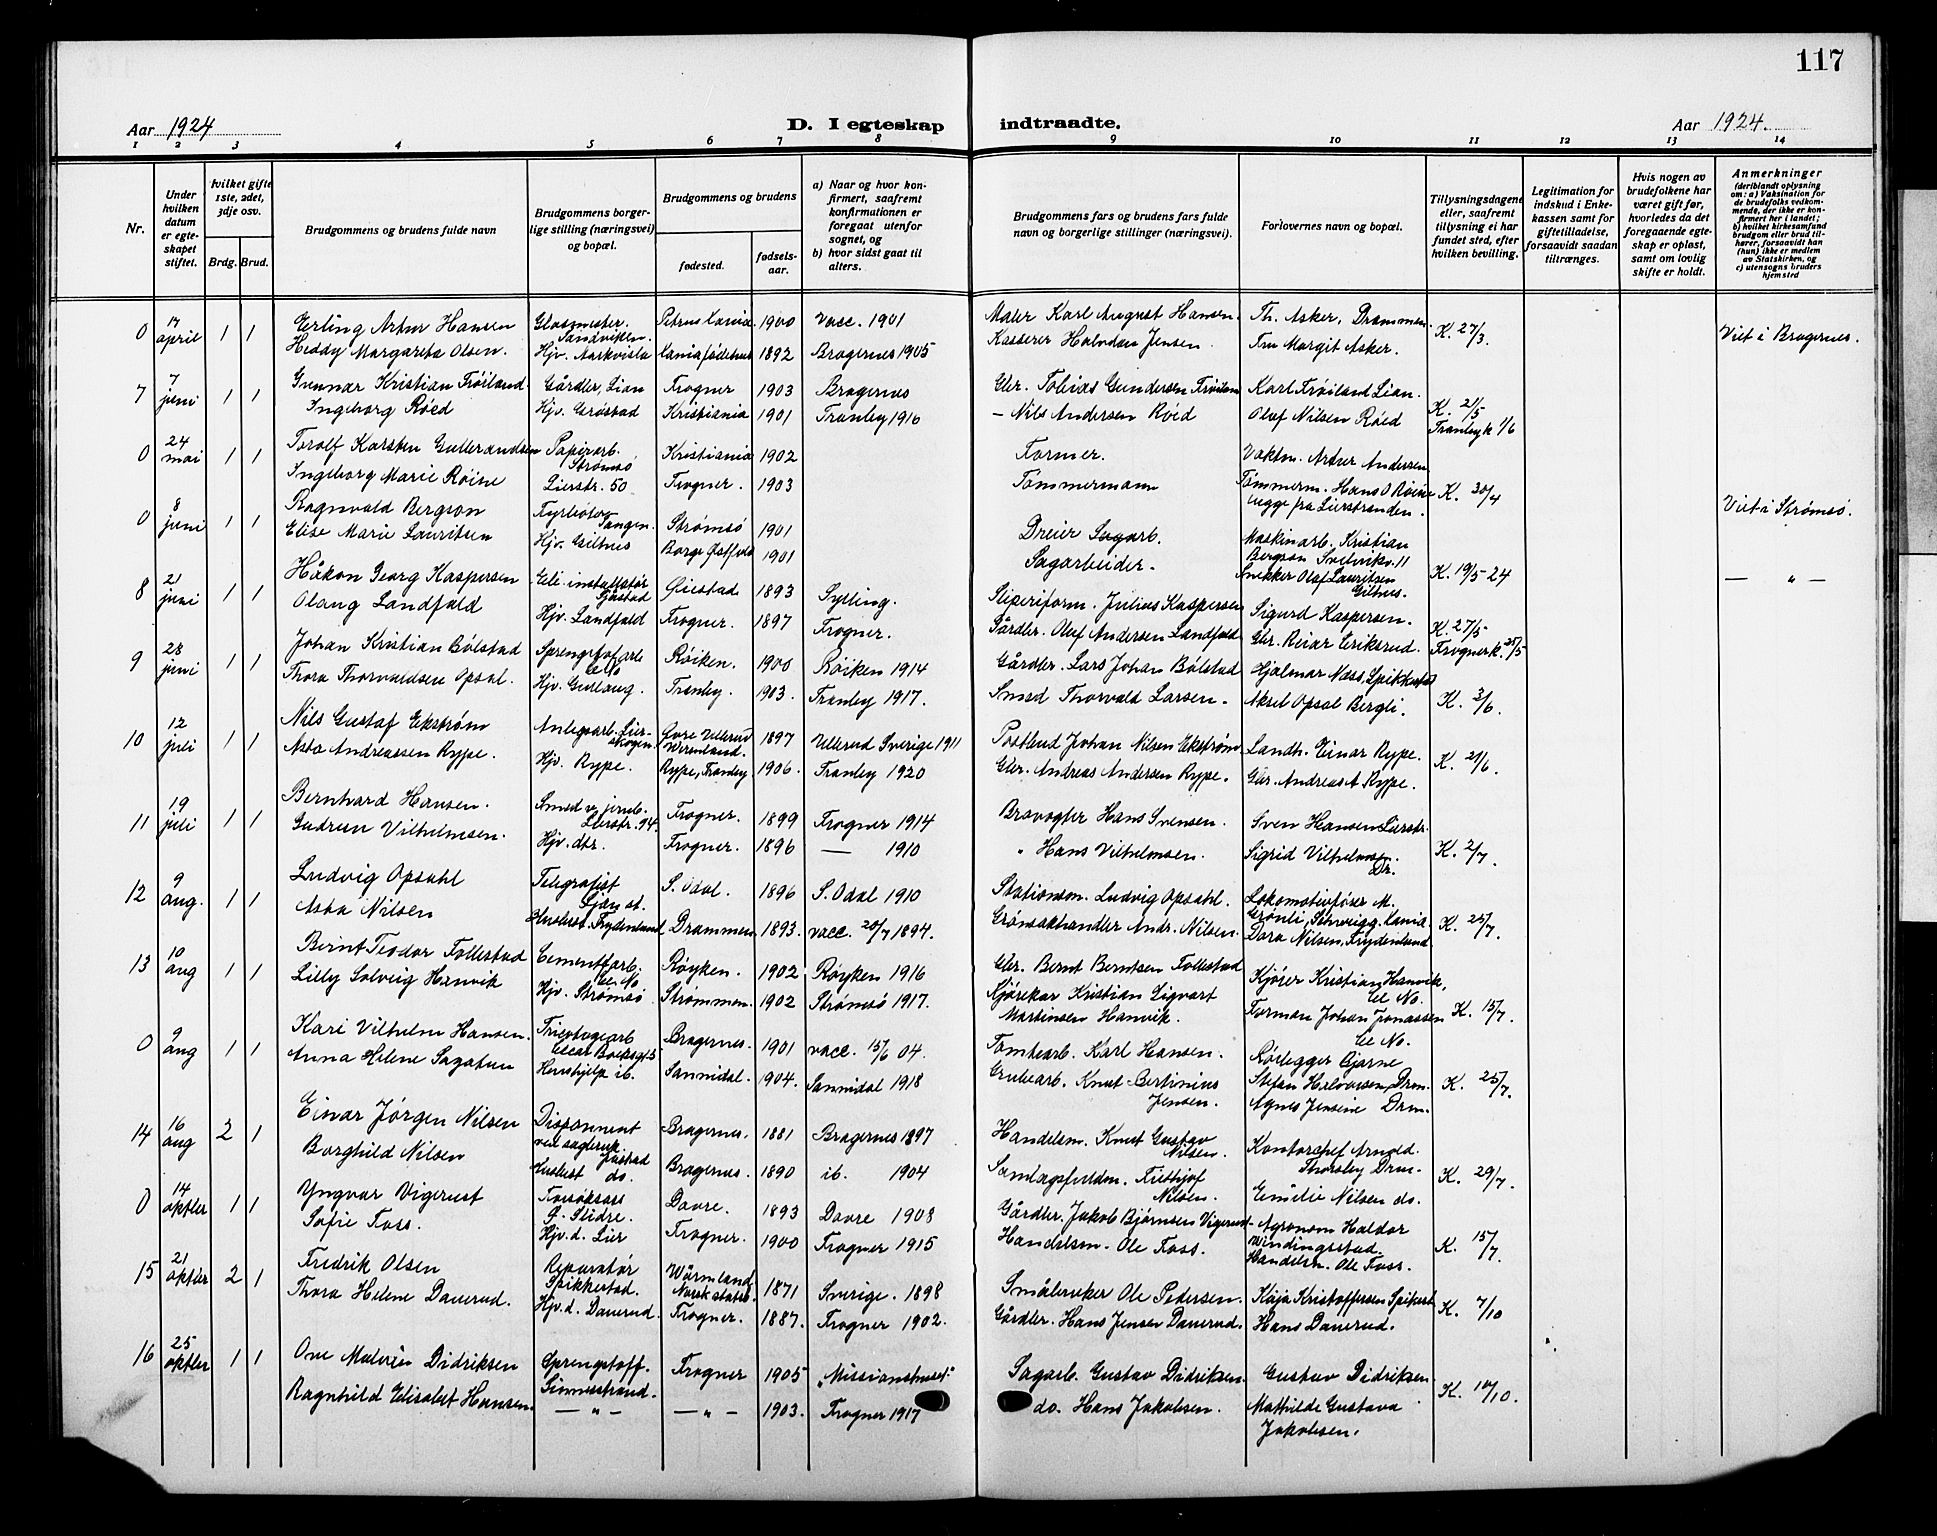 117
Aar 1924
D. I egteskap indtraadte.
Aar 1924.
1 2 3 4 5 6 7 8 9 10 11 12 13 14
Nr.
Under hvilken datum er egteskapet stiftet.
hvilket gifte 1ste, 2det, 3dje osv.
Brdg. Brud.
Brudgommens og brudens fulde navn
Brudgommens borgerlige stilling (næringsvei) og bopæl.
Brudgommens og brudens
fødested.
fødselsaar.
a) Naar og hvor konfirmert, saafremt konfirmationen er foregaat utenfor sognet, og
b) hvor sidst gaat til alters.
Brudgommens fars og brudens fars fulde navn og borgerlige stillinger (næringsvei).
Forlovernes navn og bopæl.
Tillysningsdagene eller, saafremt tillysning ei har fundet sted, efter hvilken bevilling.
Legitimation for indskud i Enkekassen samt for giftetilladelse, forsaavidt saadan tiltrænges.
Hvis nogen av brudefolkene har været gift før, hvorledes da det foregaaende egteskap er opløst, samt om lovlig skifte er holdt.
Anmerkninger
(deriblandt oplysning om: a) Vaksination for de brudefolks vedkommende, der ikke er konfirmert her i landet; b) hvilket kirkesamfund brudgom eller brud tilhører, forsaavidt han (hun) ikke er medlem av Statskirken, og c) utensogns bruders hjemsted
0 17 april 1 1 Erling Artur Hansen Glasmester. Sandviken 1900 vacc. 1901 Maler Karl August Hansen. Th. Asker, Drammen K. 27/3. Viet i Bragernes.
Heddy Margareta Olsen. Hjv. 1892 Bragernes 1905 Kasserer Halvdan Jensen Fru Margit Asker.
7 7 juni 1 1 Gunnar Kristian Frøiland Gårdbr, Lian Frogner 1903 Bragernes Gbr. Tobias Gundersen Karl Frøiland Lian.
Ingeborg Røed Hjv. Grøstad Kristiania 1901 Tranby 1916 – Nils Andersen Røed Olaf Nilsen Røed K. 21/5 Tranby k 1/6
0 24 mai 1 1 Torolf Karsten Gulbrandsen Papirarb. Strømsø Kristiania 1902 Former. Vaktm. Artur Andersen
Ingeborg Marie Røine Lierstr. 50 Frogner. 1903 Tømmermann Tømmerm. Hans O Røine begge fra Lierstranden. K. 30/4 Viet i Strømsø.
0 8 juni 1 1 Ragnvald Bergson Fyrbøter Tangen. Strømsø 1901 Dreier Sagarb. Maskinarb. Kristian Bergson Svelvikv. 11
Elise Marie Lauritsen Hjv. Gilhus Borge Østfold 1901 Sagarbeider. Snekker Olaf Lauritsen Gilhus. K. 19/5 24 — " —
8 21 juni 1 1 Håkon Georg Kaspersen Ele. installatør Gjustad Øiestad 1893 Sylling. Sliperiform. Julius Kaspersen Sigurd Kaspersen.
Olaug Landfald Hjv. Landfald Frogner. 1897 Frogner. Gårdbr. Oluf Andersen Landfald Gbr. Reiar Eriksrud. K. 27/5 Frogner k. 25/5
9 28 juni 1 1 Johan Kristian Bölstad Røiken. 1900 Røiken 1914 Gårdbr. Lars Johan Bölstad Hjalmar Næss, Spikkestad
Thora Thorvaldsen Opsal. Hjv. Gullaug. Tranby. 1903. Tranby 1917. Smed Thorvald Larsen. Aksel Opsal Bergli. K. 3/6.
10 12 juli 1 1 Nils Gustaf Ekstrøm Anlegsarb. Lierskogen Øvre Ullerud Wermland. 1897 Ullerud Sverige 1911 Postbud Johan Nilsen Ekstrøm Landh. Einar Rype.
Asta Andreassen Rype. Hjv. Rype. Rype, Tranby 1906. Tranby 1920 Gbr. Andreas Andersen Rype. Gbr. Andreas A. Rype. K. 21/6.
11 19 juli 1 1 Bernhard Hansen. Smed v. jernb. Lierstr. 94. Frogner. 1899 Frogner 1914 Brovogter Hans Svensen. Sven Hansen Lierstr.
Gudrun Vilhelmsen. Hjv. dtr. Frogner. 1896 — 1910 " Hans Vilhelmsen. Sigrid Vilhelmsen. Dr. K. 2/7.
12 9 aug. 1 1 Ludvig Opsahl Telegrafist Lier st. S. Odal. 1896 S. Odal 1910 Stationsm. Ludvig Opsahl. Lokomotivfører M. Grønli,
Asta Nilsen Husbest. Frydenlund Drammen 1893. vacc. 20/7 1894. Grønsakhandler Andr. Nilsen. Dora Nilsen, Frydenlund K. 25/7.
13 10 aug 1 1 Bernt Teodor Follestad Cementarb. Røyken. 1902 Røyken 1916 Gbr. Bernt Berntsen Follestad Kjører Kristian Hanvik,
Lilly Solveig Hanvik Hjv. Strømsø Strømmen. 1902 Strømsø 1917. Kjørekar Kristian Sigvart Martinsen Hanvik. Forman Johan Jonassen K. 15/7.
0 9 aug 1 1 Karl Vilhelm Hansen. Bragernes. 1901 vacc. 15/6 04. Tomtearb. Karl Hansen. Rørlegger Bjarne Stefan Halvorsen, Drm.
Anna Helene Sagatun Hushjelp ib. Sannidal. 1904. Sannidal 1918 Grubearb. Knut Bertinius Jensen. Agnes Jensine Drm. K. 25/7.
14 16 aug 2 1 Einar Jørgen Nilsen Disponent ved sagbruk Gjustad Bragernes. 1881 Bragernes 1897 Handelsm. Knut Gustav Nilsen. Kontorchef Arnold. Thorsby Drm.
Borghild Nilsen Husbest do. Bragernes. 1890 ib. 1904 Fridtjof Nilsen. Emilie Nilsen do. K. 29/7.
0 14 oktbr 1 1 Yngvar Vigerust Ø. Slidre. Dovre. 1893 Dovre 1908 Gårdbr. Jakob Bjørnsen Vigerust Agronom Haldor Windingsstad.
Sofie Foss. Hjv. d. Lier Frogner. 1900 Frogner 1915 Handelsm. Ole Foss. Handelsm. Ole Foss. K. 15/7.
15 21 oktbr 2 1 Fredrik Olsen Reparatør Spikkestad. Wärmland Norsk statsb. 1871 Sverige. 1898 Småbruker Ole Pedersen. Kaja Kristoffersen Spikest
Thora Helene Dauerud. Hjv. d. Dauerud. Frogner. 1887. Frogner 1902. Gårdbr. Hans Jensen Dauerud. Hans Dauerud. K. 7/10
16 25 oktbr 1 1 Ove Malvin Didriksen Sprengstoff. Linnesstrand. Frogner 1905 „Missionshuset" Sagarb. Gustav Didriksen. Gustav Didriksen
Ragnhild Elisabet Hansen. — " — — " — 1903. Frogner 1917 do. Hans Jakobsen. Mathilde Gustava Jakobsen. K. 10/10.